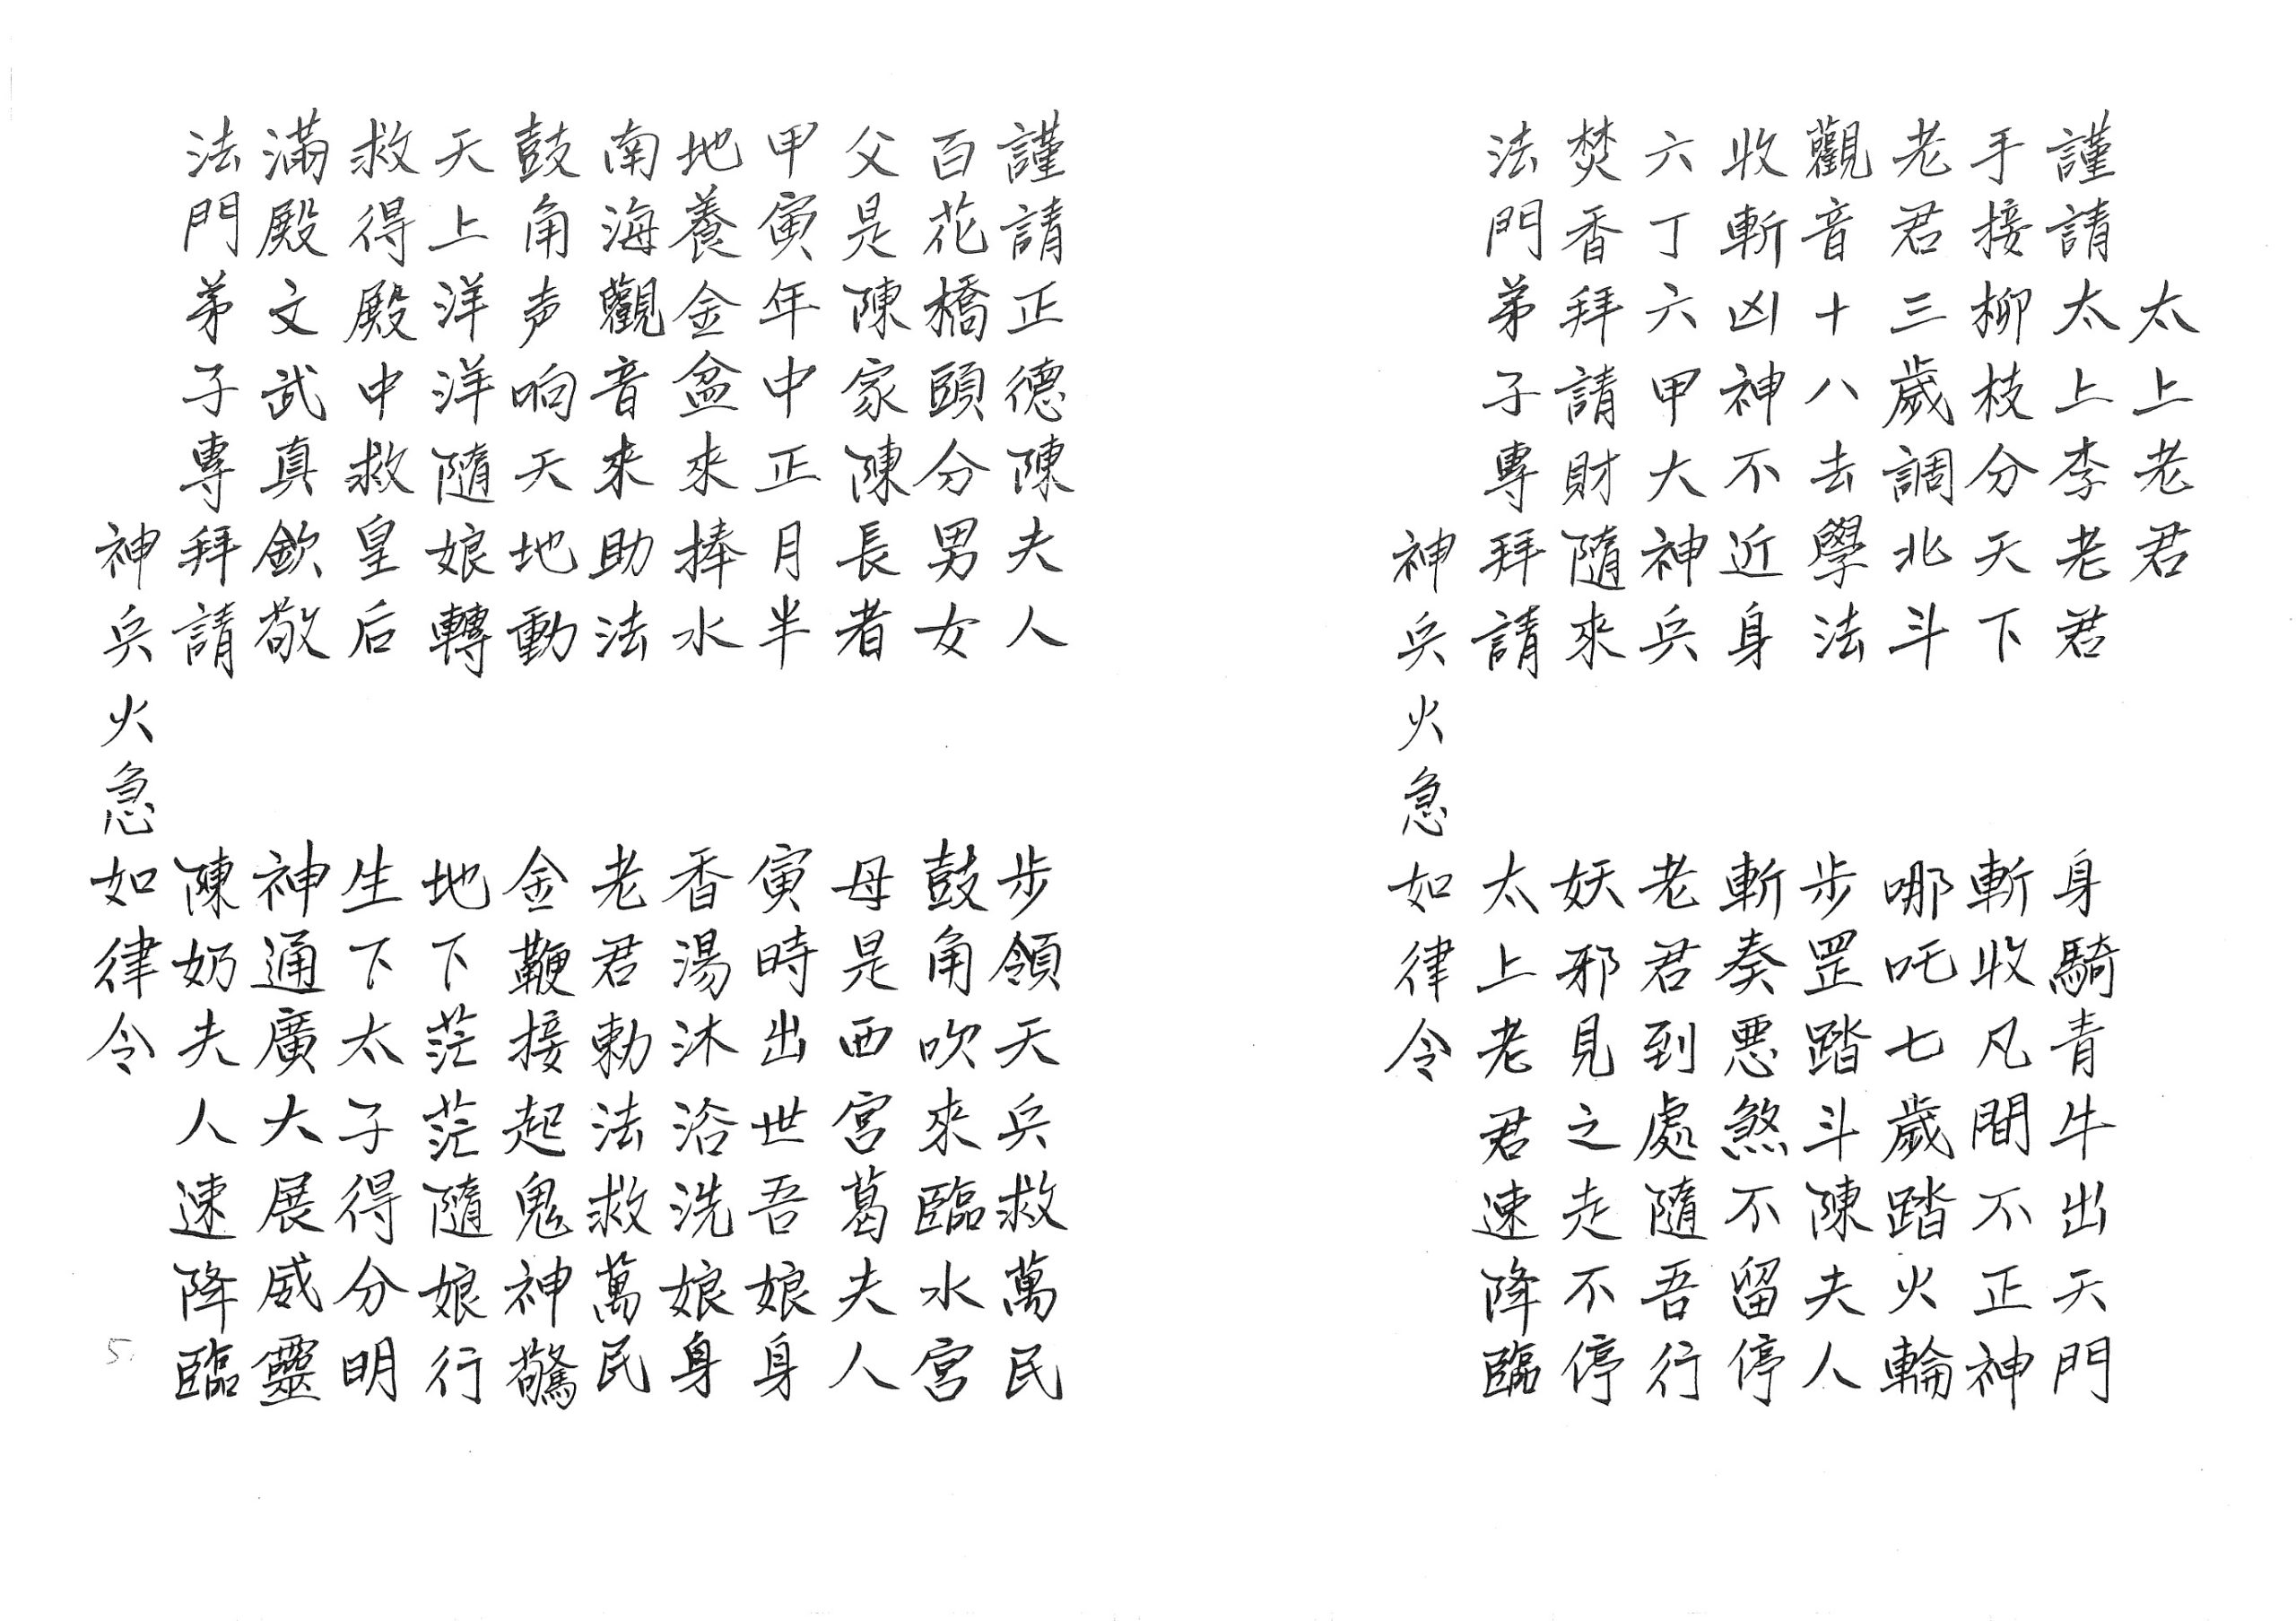 太上老君
謹請太上李老君　身騎青牛出天門
手接柳枝分天下　斬收凡間不正神
老君三歲調北斗　哪吒七歲踏火輪
觀音十八去學法　步罡踏斗陳夫人
收斬凶神不近身　斬奏悪煞不留停
六丁六甲大神兵　老君到處隨吾行
焚香拜請財隨來　妖邪見之走不停
法門弟子專拜請　太上老君速降臨
神兵火急如律令
謹請正德陳夫人　步領天兵救萬民
百花橋頭分男女　鼓角吹來臨水宮
父是陳家陳長者　母是西宮葛夫人
甲寅年中正月半　寅時出世吾娘身
地養金盆來捧水　香湯沐浴洗娘身
南海觀音來助法　老君勅法救萬民
鼓角声响天地動　金鞭接起鬼神驚
天上洋洋隨娘轉　地下茫茫隨娘行
救得殿中救皇后　生下太子得分明
滿殿文武真欽敬　神通廣大展威靈
法門弟子專拜請　陳奶夫人速降臨
神兵火急如律令
5